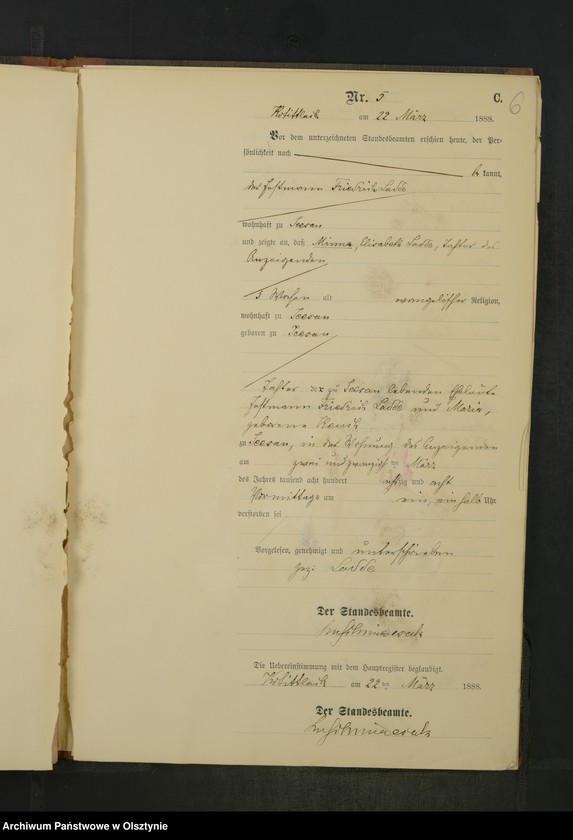 Nr. 5 C. 6
am 22 März 1888.
Vor dem unterzeichneten Standesbeamten erschien heute, der Per-
sönlichkeit nach
kannt,
der Festmann Friedrich Ladde
wohnhaft zu Seesan
und zeigte an, daß Minna, Elisabeth Ladde, Tochter des
Anzeigenden
3 Wochen alt evangelischer Religion,
wohnhaft zu Seesan
geboren zu Seesan
Tochter zu Seesan lebenden Eheleute
Festmann Friedrich Ladde und Maria,
geborene
zu Seesan, in der Wohnung des Anzeigenden
am zwei und zwanzigsten März
des Jahres tausend acht hundert achtzig und acht
Vormittags um ein, ein halb Uhr
verstorben sei
Vorgelesen, genehmigt und unterschrieben
gez: Ladde
Der Standesbeamte.
Die Uebereinstimmung mit dem Hauptregister beglaubigt.
am 22ten März 1888.
Der Standesbeamte.
Archiwum Państwowe w Olsztynie